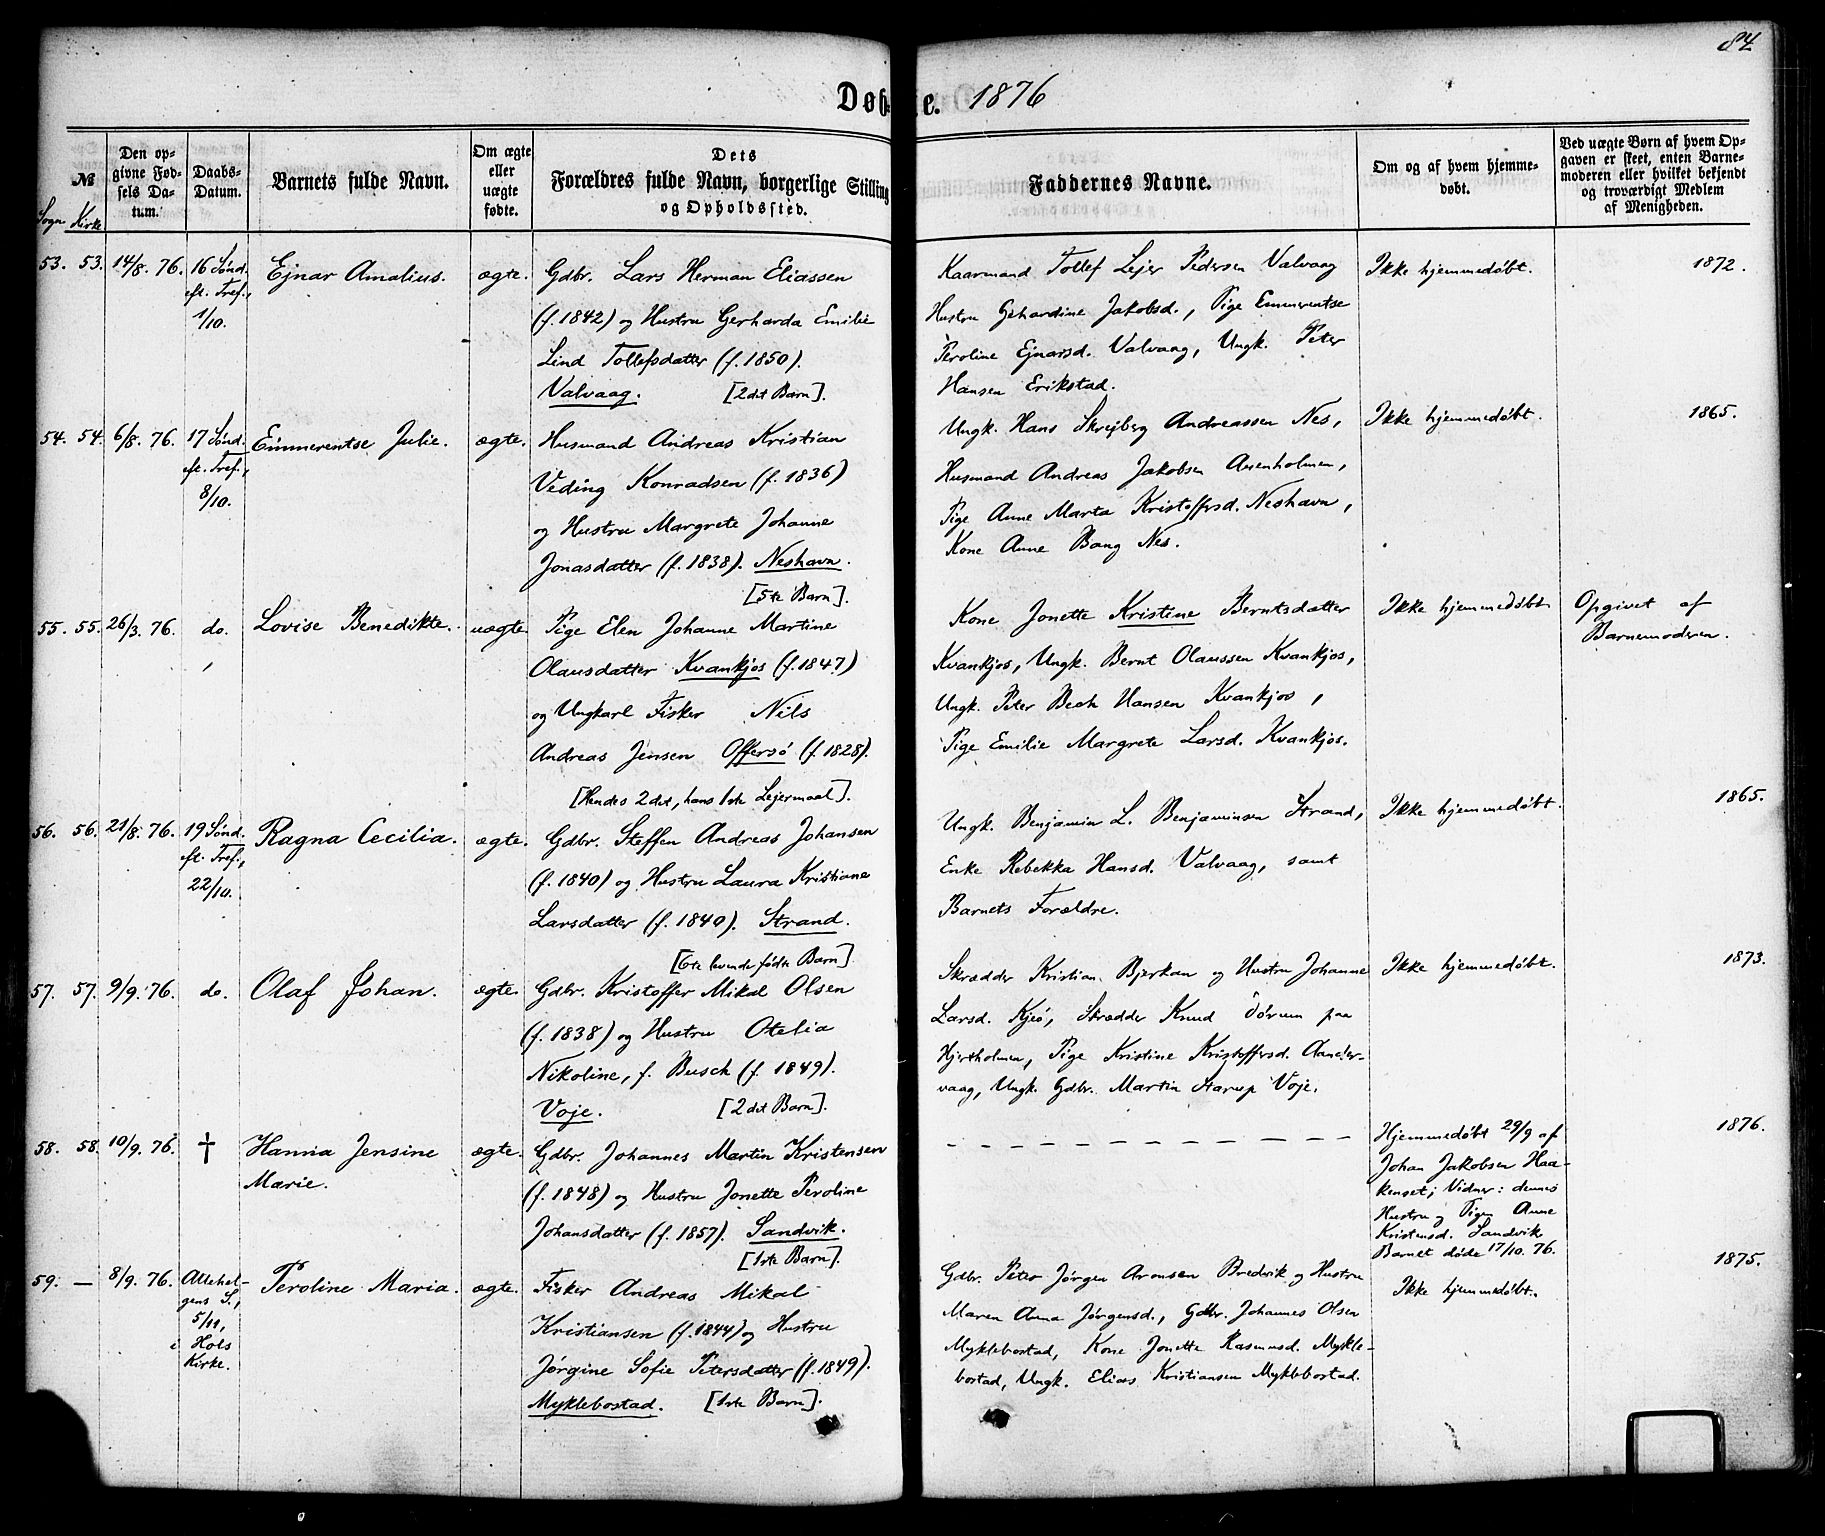 84
Døbte. 1876
№
Sogn. Kirke
Den opgivne Fødsels Datum.
Daabs-Datum.
Barnets fulde Navn.
Om ægte eller uægte fødte.
Dets Forældres fulde Navn, borgerlige Stilling og Opholdssted.
Faddernes Navne.
Om og af hvem hjemmedøbt.
Ved uægte Børn af hvem Opgaven er skeet, enten Barnemoderen eller hvilket bekjendt og troværdigt Medlem af Menigheden.
53. 53. 14/8. 76.
16 Sønd.
eft. Tref.,
1/10.
Ejnar Amalius.
ægte.
Gdbr. Lars Herman Eliassen
(f. 1842) og Hustru Gerharda Emilie
Lind Tollefsdatter (f. 1850).
Valvaag. [2det Barn].
Kaarmand Tollef Lejer Pedersen Valvaag
Hustru Gehardine Jakobsd., Pige Emmerentse
Peroline Ejnarsd. Valvaag, Ungk. Peter
Hansen Erikstad.
Ikke hjemmedøbt.
1872.
54. 54. 6/8. 76.
17 Sønd.
eft. Tref.,
8/10.
Emmerentse Julie.
ægte.
Husmand Andreas Kristian
Veding Konradsen (f. 1836)
og Hustru Margrete Johanne
Jonasdatter (f. 1838). Neshavn.
[5te Barn].
Ungk. Hans Skrejberg Andreassen Nes,
Husmand Andreas Jakobsen Auenholmen,
Pige Anne Marta Kristoffersd. Neshavn,
Kone Anne Bang Nes.
Ikke hjemmedøbt.
1865.
55. 55. 26/3. 76.
do.
Lovise Benedikte.
uægte.
Pige Elen Johanne Martine
Olausdatter Kvankjos (f. 1847)
og Ungkarl Fisker Nils
Andreas Jensen Offersø (f. 1828).
[Hendes 2det, hans 1ste Lejermaal].
Kone Jonette Kristine Berntsdatter
Kvankjos, Ungk. Bernt Olaussen Kvankjos,
Ungk. Peter Bech Hansen Kvankjos,
Pige Emilie Margrete Larsd. Kvankjos.
Ikke hjemmedøbt.
Opgivet af
Barnemoderen.
56. 56. 21/8. 76.
19 Sønd.
eft. Tref.,
22/10.
Ragna Cecilia.
ægte.
Gdbr. Steffen Andreas Johansen
(f. 1840) og Hustru Laura Kristiane
Larsdatter (f. 1840). Strand.
[6te levende fødte Barn].
Ungk. Benjamin L. Benjaminsen Strand,
Enke Rebekka Hansd. Valvaag, samt
Barnets Forældre.
Ikke hjemmedøbt.
1865.
57. 57. 9/9. 76.
do.
Olaf Johan.
ægte.
Gdbr. Kristoffer Mikal Olsen
(f. 1838) og Hustru Otelia
Nikoline, f. Busch (f. 1849).
Voje. [2det Barn].
Skrædder Kristian Bjerkan og Hustru Johanne
Larsd. Kjeø, Skrædder Knud Dørum paa
Hjertholmen, Pige Kristine Kristoffersd. Aander-
vaag, Ungk. Gdbr. Martin Aarup Voje.
Ikke hjemmedøbt.
1873.
58. 58. 10/9. 76.
†
Hanna Jensine
Marie.
ægte.
Gdbr. Johannes Martin Kristensen
(f. 1848) og Hustru Jonette Peroline
Johansdatter (f. 1857). Sandvik.
[1ste Barn].
– – – – – – – – – –
Hjemmedøbt 29/9 af
Johan Jakobsen Haa-
kenset; Vidner: dennes
Hustru og Pigen Anne
Kristensd. Sandvik
Barnet døde 17/10. 76.
1876.
59. — 8/9. 76.
Allehel-
gens S.,
5/11,
i Hols
Kirke.
Peroline Maria.
ægte.
Fisker Andreas Mikal
Kristiansen (f. 1844) og Hustru
Jørgine Sofie Petersdatter (f. 1849).
Myklebostad. [1ste Barn].
Gdbr. Peter Jørgen Aronsen Bredvik og Hustru
Maren Anna Jørgensd., Gdbr. Johannes Olsen
Myklebostad, Kone Jonette Rasmusd. Mykle-
bostad, Ungk. Elias Kristiansen Myklebostad.
Ikke hjemmedøbt.
1875.